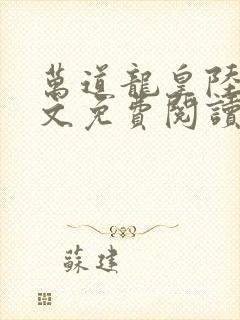 萬道龍皇陸
文免費閱讀
蘇建